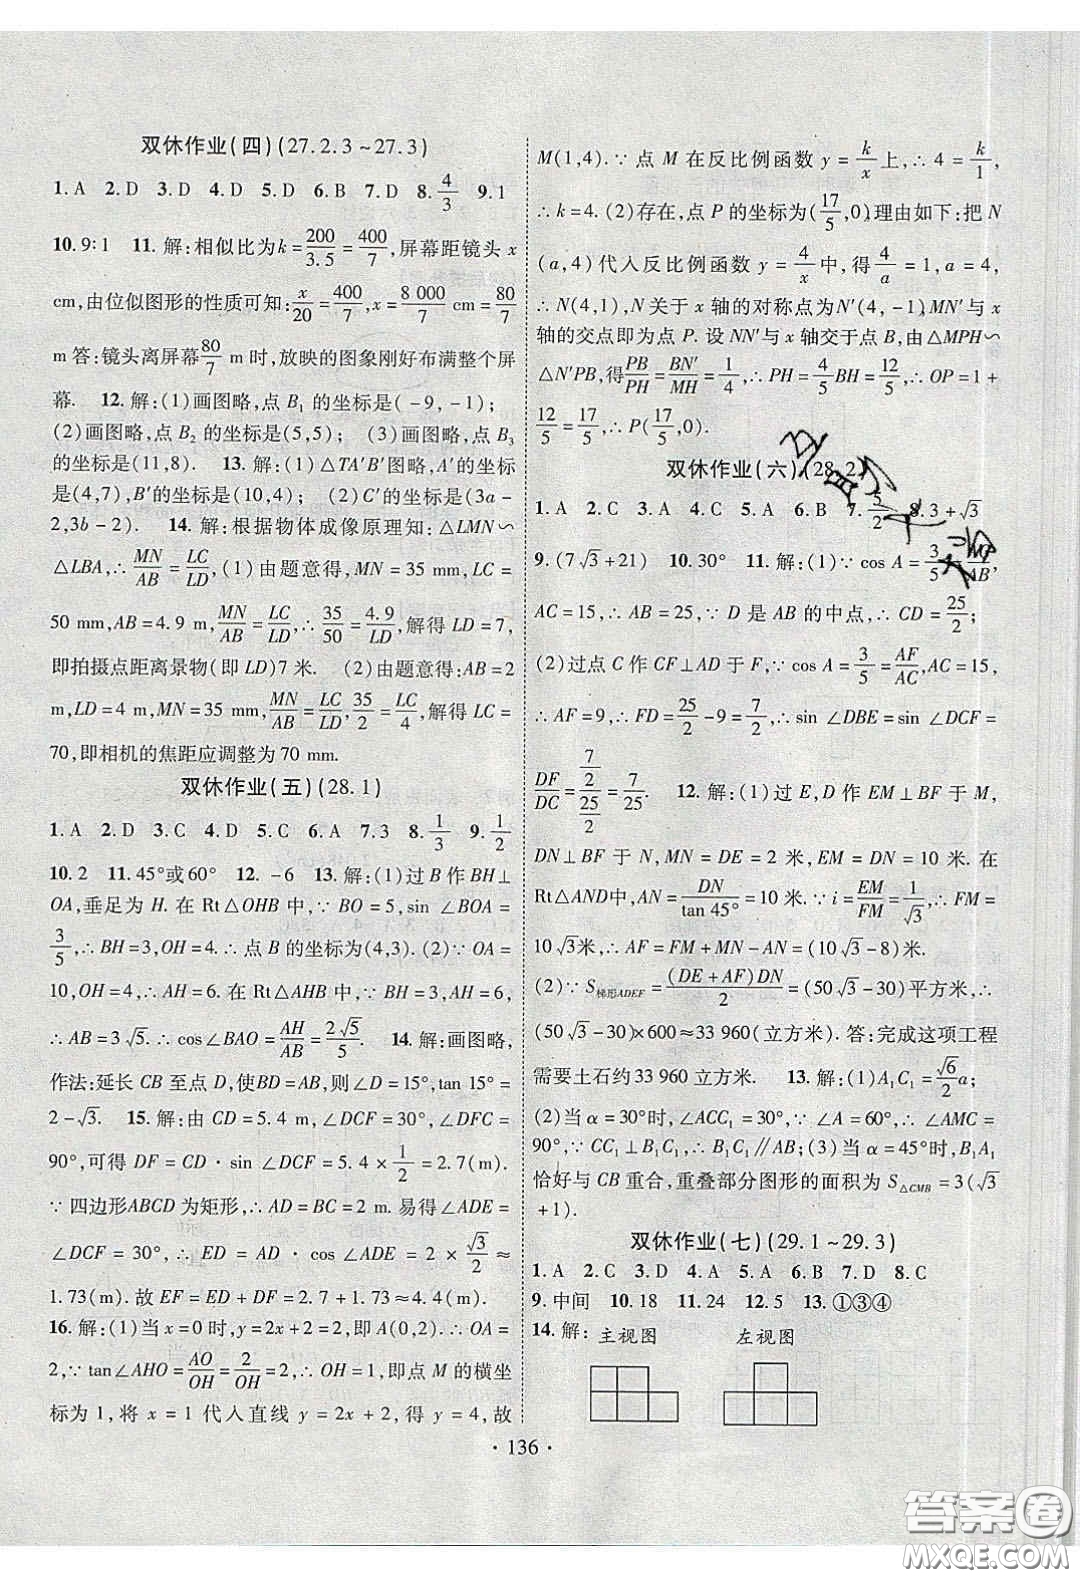 双休作业(四)(27.2.3~27.3)
1.A 2.D 3.D 4.D 5.D 6.B 7.D 8.4/3 9.1
10.9∶1 11.解:相似比为k=200/3.5=400/7,屏幕距镜头x
cm,由位似图形的性质可知:x/20=400/7,x=8 000/7 cm=80/7
m 答:镜头离屏幕80/7 m时,放映的图象刚好布满整个屏
幕. 12.解:(1)画图略,点B₁的坐标是(-9,-1);
(2)画图略,点B₂的坐标是(5,5); (3)画图略,点B₃
的坐标是(11,8). 13.解:(1)△TA′B′图略,A′的坐标
是(4,7),B′的坐标是(10,4); (2)C′的坐标是(3a-
2,3b-2). 14.解:根据物体成像原理知:△LMN∽
△LBA,∴MN/AB=LC/LD,(1)由题意得,MN=35 mm,LC=
50 mm,AB=4.9 m,MN/AB=LC/LD,∴35/50=4.9/LD,解得LD=7,
即拍摄点距离景物(即LD)7米. (2)由题意得:AB=2
m,LD=4 m,MN=35 mm,MN/AB=LC/LD,35/2=LC/4,解得LC=
70,即相机的焦距应调整为70 mm.
双休作业(五)(28.1)
1.A 2.D 3.C 4.D 5.C 6.A 7.3 8.1/3 9.1/2
10.2 11.45°或60° 12.-6 13.解:(1)过B作BH⊥
OA,垂足为H.在Rt△OHB中,∵BO=5,sin∠BOA=
3/5,∴BH=3,OH=4.∴点B的坐标为(4,3).(2)∵OA=
10,OH=4,∴AH=6.在Rt△AHB中,∵BH=3,AH=6,
∴AB=3√5.∴cos∠BAO=AH/AB=2√5/5. 14.解:画图略,
作法:延长CB至点D,使BD=AB,则∠D=15°,tan 15°=
2-√3. 15.解:由CD=5.4 m,∠DCF=30°,∠DFC=
90°,可得DF=CD·sin∠DCF=5.4×1/2=2.7(m).
∵四边形ABCD为矩形,∴AD=BC=2 m.易得∠ADE=
∠DCF=30°,∴ED=AD·cos∠ADE=2×√3/2≈
1.73(m).故EF=ED+DF=2.7+1.73≈4.4(m).
16.解:(1)当x=0时,y=2x+2=2,即A(0,2).∴OA=
2,∵tan∠AHO=AO/OH=2/OH=2,∴OH=1,即点M的横坐
标为1,将x=1代入直线y=2x+2,得y=4,故
M(1,4).∵点M在反比例函数y=k/x上,∴4=k/1
∴k=4.(2)存在,点P的坐标为(17/5,0).理由如下:把N
(a,4)代入反比例函数y=4/x中,得4/a=1,a=4,
∴N(4,1),N关于x轴的对称点为N′(4,-1),MN′与x
轴的交点即为点P.设NN′与x轴交于点B,由△MPH∽
△N′PB,得PB/PH=BN′/MH=1/4,∴PH=4/5BH=12/5,∴OP=1+
12/5=17/5,∴P(17/5,0).
双休作业(六)(28.2)
1.A 2.C 3.C 4.A 5.A 6.B 7.5/2 8.3+√3
9.(7√3+21) 10.30° 11.解:(1)∵cos A=3/5=AC/AB,
AC=15,∴AB=25,∵D是AB的中点,∴CD=25/2;
(2)过点C作CF⊥AD于F,∵cos A=3/5=AF/AC,AC=15,
∴AF=9,∴FD=25/2-9=7/2,∴sin∠DBE=sin∠DCF=
DF/DC=(7/2)/(25/2)=7/25. 12.解:(1)过E,D作EM⊥BF于M,
DN⊥BF于N,MN=DE=2米,EM=DN=10米.在
Rt△AND中,AN=DN/tan 45°=10米.∵i=EM/FM=1/√3,∴FM=
10√3米.∴AF=FM+MN-AN=(10√3-8)米.
(2)∵S梯形ADEF=(DE+AF)DN/2=(50√3-30)平方米,∴
(50√3-30)×600≈33 960(立方米).答:完成这项工程
需要土石约33 960立方米. 13.解:(1)A₁C₁=√6/2 a;
(2)当α=30°时,∠ACC₁=30°,∵∠A=60°,∴∠AMC=
90°,∵CC₁⊥B₁C₁,∴B₁C₁∥AB;(3)当α=45°时,B₁A₁
恰好与CB重合,重叠部分图形的面积为S△CMB=3(√3
+1).
双休作业(七)(29.1~29.3)
1.A 2.C 3.D 4.A 5.A 6.B 7.D 8.C
9.中间 10.18 11.24 12.5 13.①③④
14.解: 主视图 左视图
·136·
答案圈
MXQE.COM